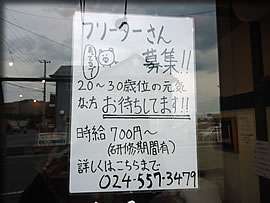 フリーターさん
募集!!
20～30歳位の元気
な方 お待ちしてます!!
時給 700円～
(研修期間有)
詳しくはこちらまで
024-557-3479